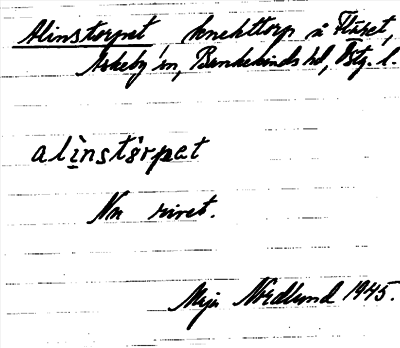 Alinstorpet, knekttorp å Fläret,
Askeby sn, Bankekinds hd, Östg. l.
alinstòrpət
Nu rivet.
Maja Nordlund 1945.